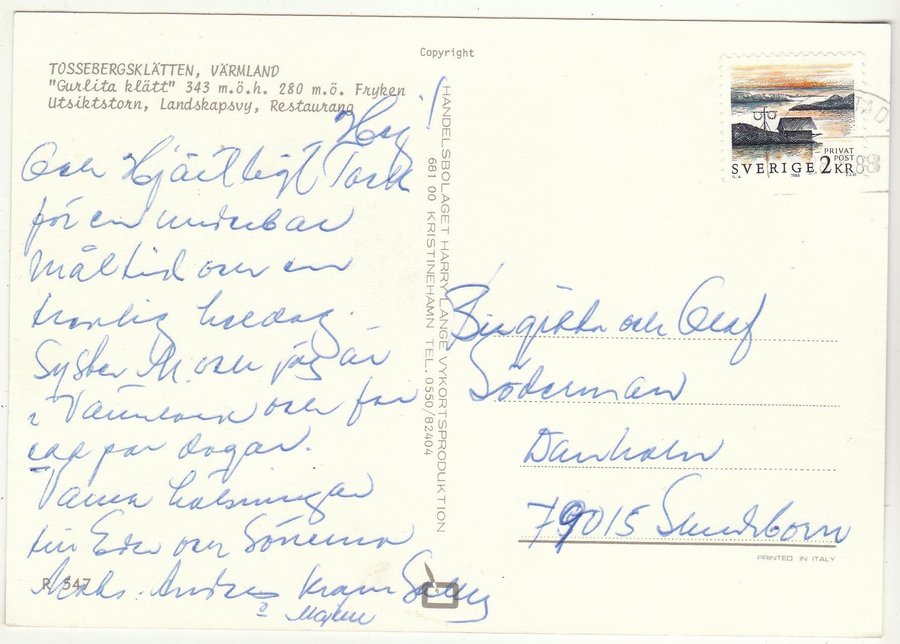 Copyright
TOSSEBERGSKLÄTTEN, VÄRMLAND
"Gurlita klätt" 343 m.ö.h. 280 m.ö. Fryken
Utsiktstorn, Landskapsvy, Restaurang
Hej!
Och Hjärtligt Tack
för en underbar
måltid och en
trevlig heldag.
Syster M. och jag är
i Värmland och far
ett par dagar.
Varma hälsningar
till Eder och Sönerna
Andreas
Kram Sally
R 547
HANDELSBOLAGET HARRY LANGE VYKORTSPRODUKTION
681 00 KRISTINEHAMN TEL. 0550/82404
PRIVAT
POST
SVERIGE 2 KR
Birgitta och Olaf
Söderman
Danholn
79015 Sundborn
PRINTED IN ITALY